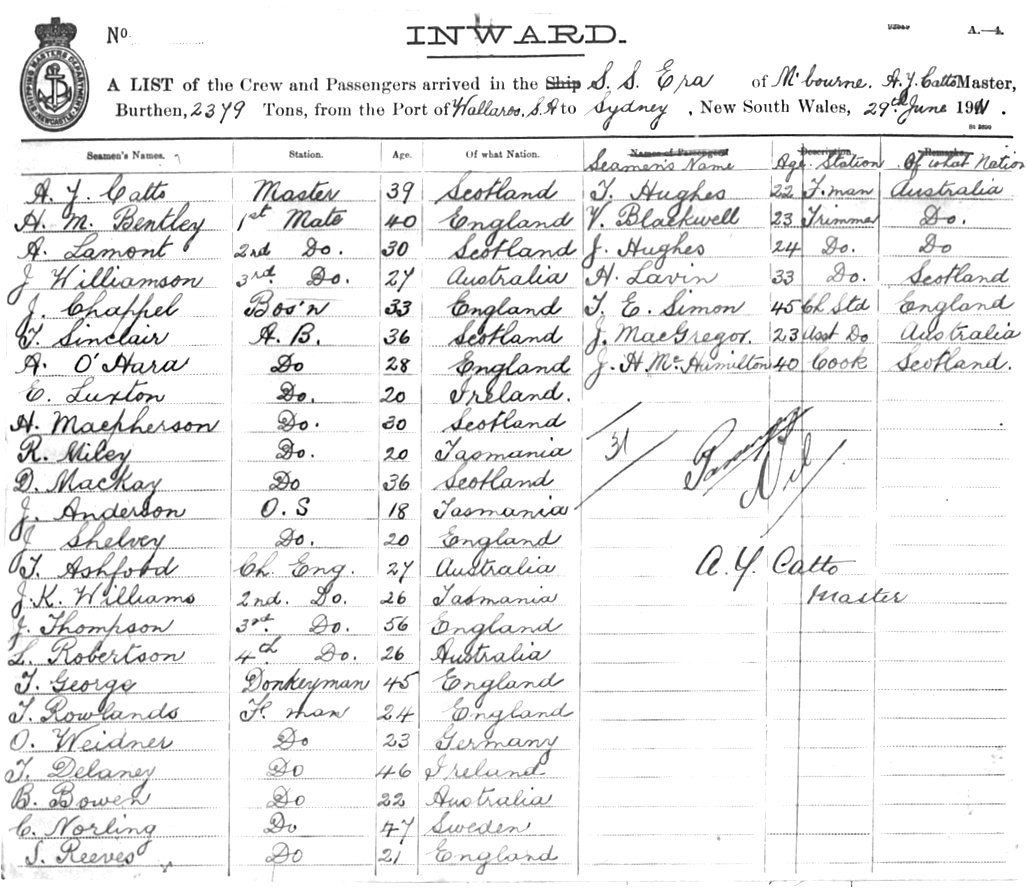 SHIPPING MASTERS DEPARTMENT NEWCASTLE
No. INWARD. A.—4.
A LIST of the Crew and Passengers arrived in the Ship S. S. Era of M'bourne. A. Y. Catto Master,
Burthen, 2379 Tons, from the Port of Wallaroo, S.A to Sydney, New South Wales, 29th June 1911.
Seamen's Names. Station. Age. Of what Nation. Names of Passengers Description. Remarks.
Seamen's Name Age Station Of what Nation
A. Y. Catto Master 39 Scotland T. Hughes 22 F. man Australia
H. M. Bentley 1st Mate 40 England V. Blackwell 23 Trimmer Do.
A. Lamont 2nd Do. 30 Scotland J. Hughes 24 Do. Do
J Williamson 3rd Do. 27 Australia H. Lavin 33 Do. Scotland
J. Chappel Bos'n 33 England T. E. Simon 45 Ch Std England
T. Sinclair A. B. 36 Scotland J. MacGregor. 23 Asst Do Australia
A. O'Hara Do 28 England J. H Mc Hamilton 40 Cook Scotland.
E. Luxton Do. 20 Ireland.
H. Macpherson Do. 30 Scotland
R. Miley Do. 20 Tasmania 31
D. MacKay Do 36 Scotland Nil
J. Anderson O. S 18 Tasmania
J Shelvey Do. 20 England
T. Ashford Ch. Eng. 27 Australia A. Y. Catto
J. K. Williams 2nd. Do. 26 Tasmania Master
J. Thompson 3rd. Do. 56 England
L. Robertson 4th Do. 26 Australia
T. George Donkeyman 45 England
T. Rowlands F. man 24 England
O. Weidner Do 23 Germany
T. Delaney Do 46 Ireland
B. Bowen Do 22 Australia
C. Norling Do 47 Sweden
S. Reeves Do 21 England